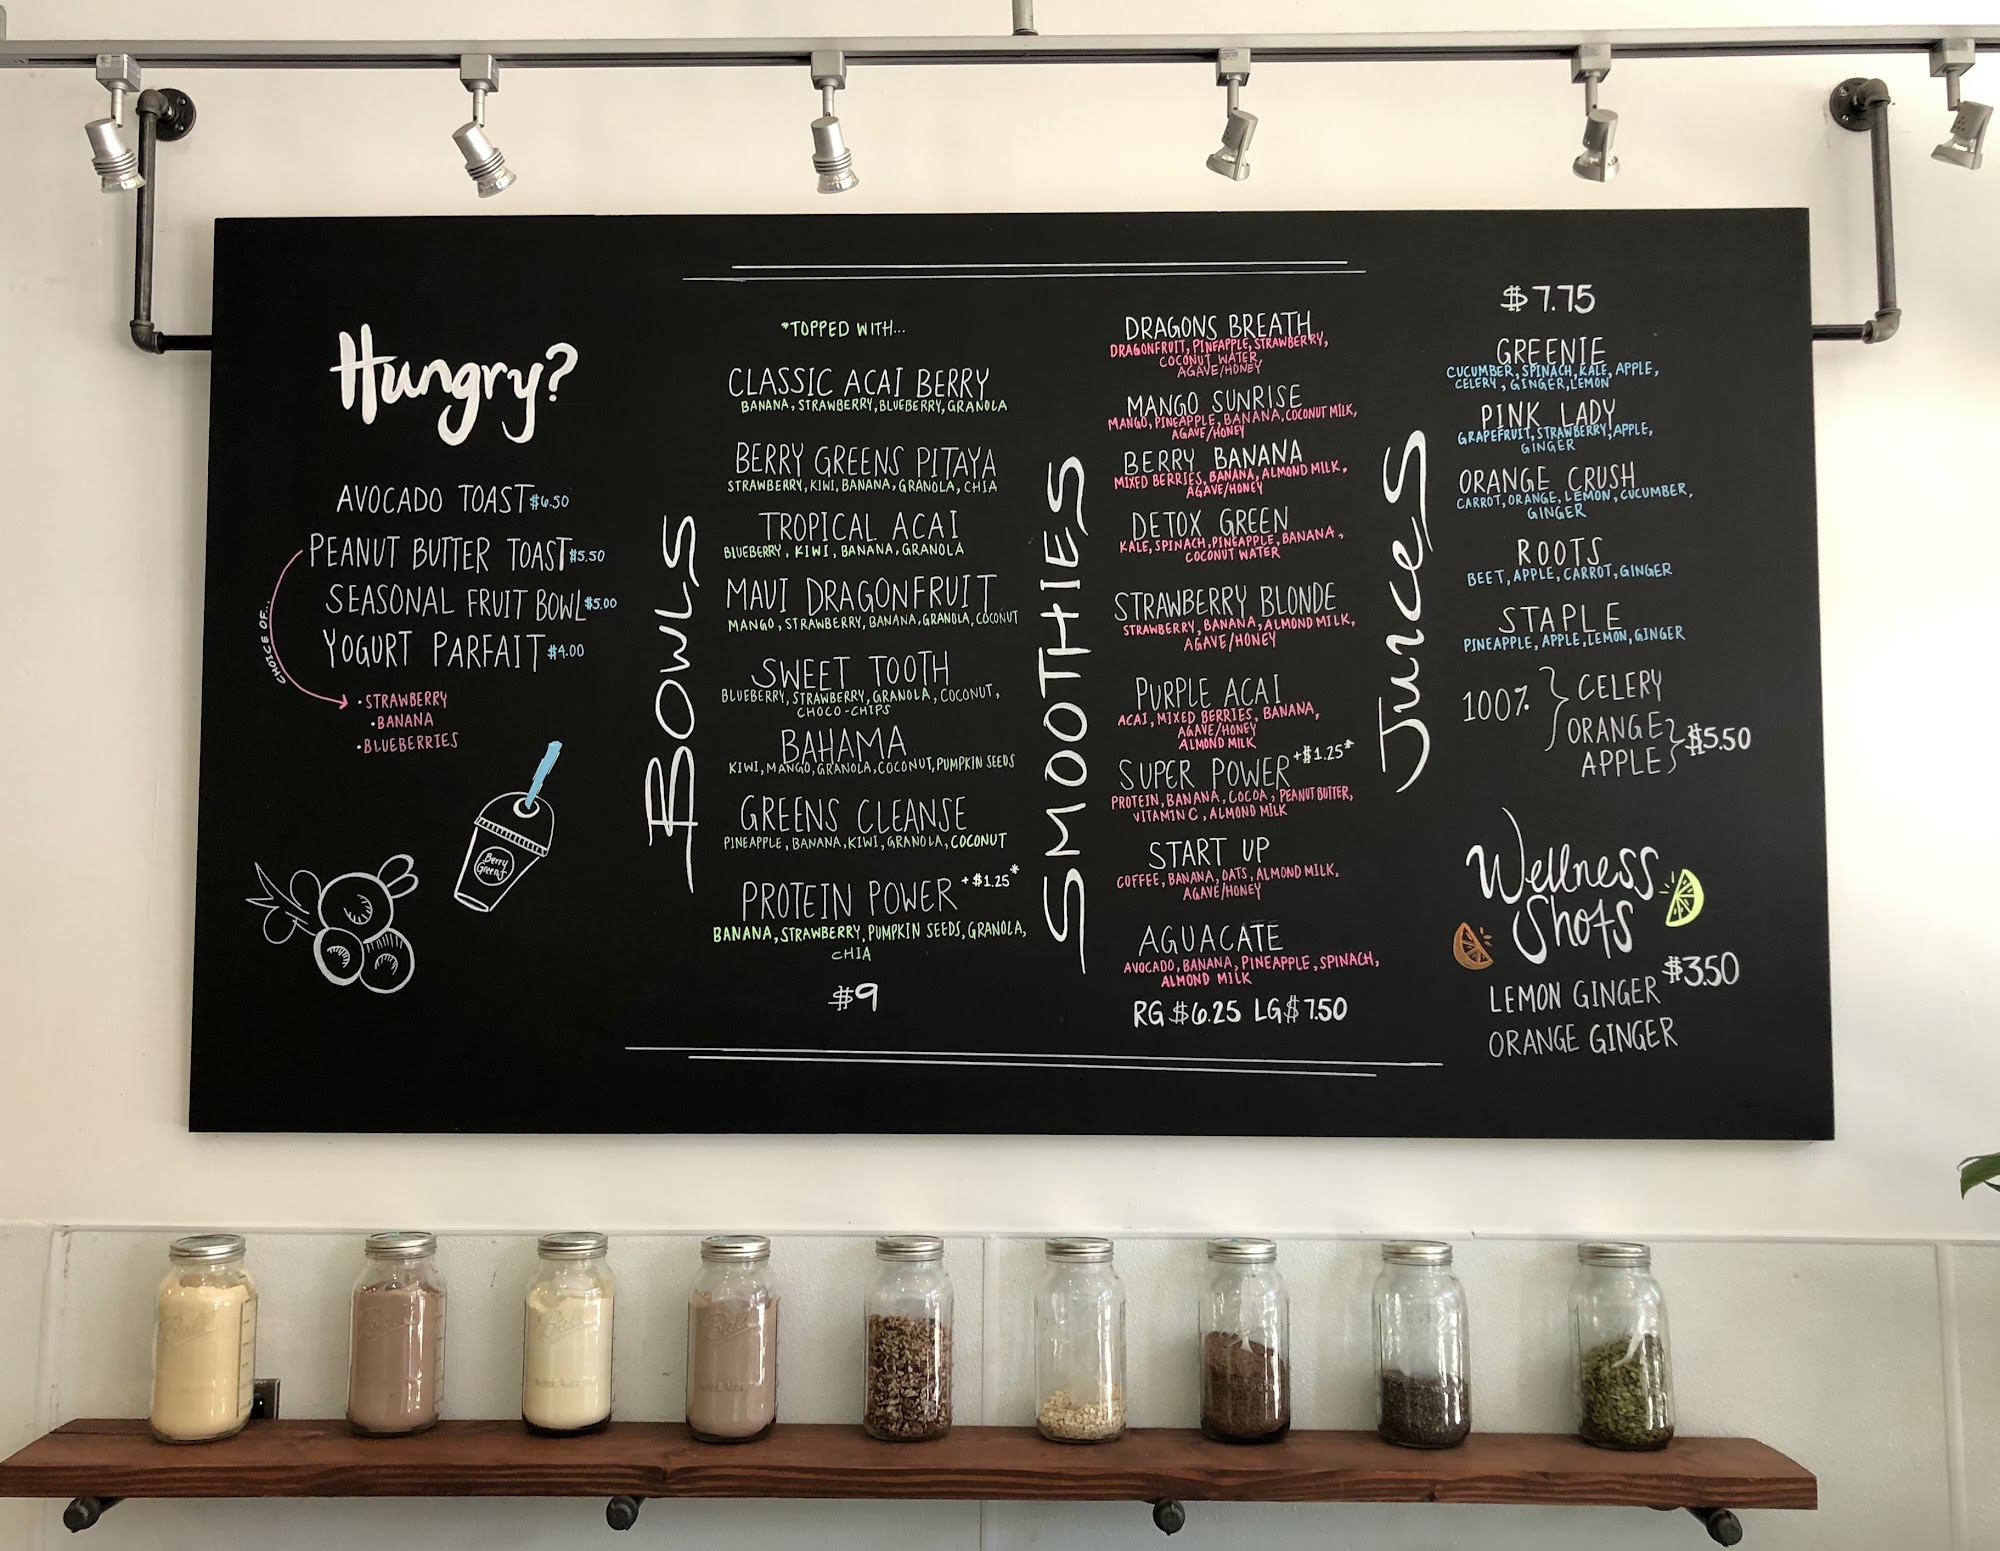 Hungry?
AVOCADO TOAST $6.50
PEANUT BUTTER TOAST $5.50
SEASONAL FRUIT BOWL $5.00
YOGURT PARFAIT $4.00
CHOICE OF...
• STRAWBERRY
• BANANA
• BLUEBERRIES
Berry
Greens
BOWLS
*TOPPED WITH...
CLASSIC ACAI BERRY
BANANA, STRAWBERRY, BLUEBERRY, GRANOLA
BERRY GREENS PITAYA
STRAWBERRY, KIWI, BANANA, GRANOLA, CHIA
TROPICAL ACAI
BLUEBERRY, KIWI, BANANA, GRANOLA
MAUI DRAGONFRUIT
MANGO, STRAWBERRY, BANANA, GRANOLA, COCONUT
SWEET TOOTH
BLUEBERRY, STRAWBERRY, GRANOLA, COCONUT,
CHOCO-CHIPS
BAHAMA
KIWI, MANGO, GRANOLA, COCONUT, PUMPKIN SEEDS
GREENS CLEANSE
PINEAPPLE, BANANA, KIWI, GRANOLA, COCONUT
PROTEIN POWER +$1.25*
BANANA, STRAWBERRY, PUMPKIN SEEDS, GRANOLA,
CHIA
$9
SMOOTHIES
DRAGONS BREATH
DRAGONFRUIT, PINEAPPLE, STRAWBERRY,
COCONUT WATER,
AGAVE/HONEY
MANGO SUNRISE
MANGO, PINEAPPLE, BANANA, COCONUT MILK,
AGAVE/HONEY
BERRY BANANA
MIXED BERRIES, BANANA, ALMOND MILK,
AGAVE/HONEY
DETOX GREEN
KALE, SPINACH, PINEAPPLE, BANANA,
COCONUT WATER
STRAWBERRY BLONDE
STRAWBERRY, BANANA, ALMOND MILK,
AGAVE/HONEY
PURPLE ACAI
ACAI, MIXED BERRIES, BANANA,
AGAVE/HONEY
ALMOND MILK
SUPER POWER +$1.25*
PROTEIN, BANANA, COCOA, PEANUT BUTTER,
VITAMIN C, ALMOND MILK
START UP
COFFEE, BANANA, OATS, ALMOND MILK,
AGAVE/HONEY
AGUACATE
AVOCADO, BANANA, PINEAPPLE, SPINACH,
ALMOND MILK
RG $6.25 LG $7.50
Juices
$7.75
GREENIE
CUCUMBER, SPINACH, KALE, APPLE,
CELERY, GINGER, LEMON
PINK LADY
GRAPEFRUIT, STRAWBERRY, APPLE,
GINGER
ORANGE CRUSH
CARROT, ORANGE, LEMON, CUCUMBER,
GINGER
ROOTS
BEET, APPLE, CARROT, GINGER
STAPLE
PINEAPPLE, APPLE, LEMON, GINGER
100% CELERY
ORANGE
APPLE $5.50
Wellness
Shots
$3.50
LEMON GINGER
ORANGE GINGER
Ball
Ball
Ball
Ball